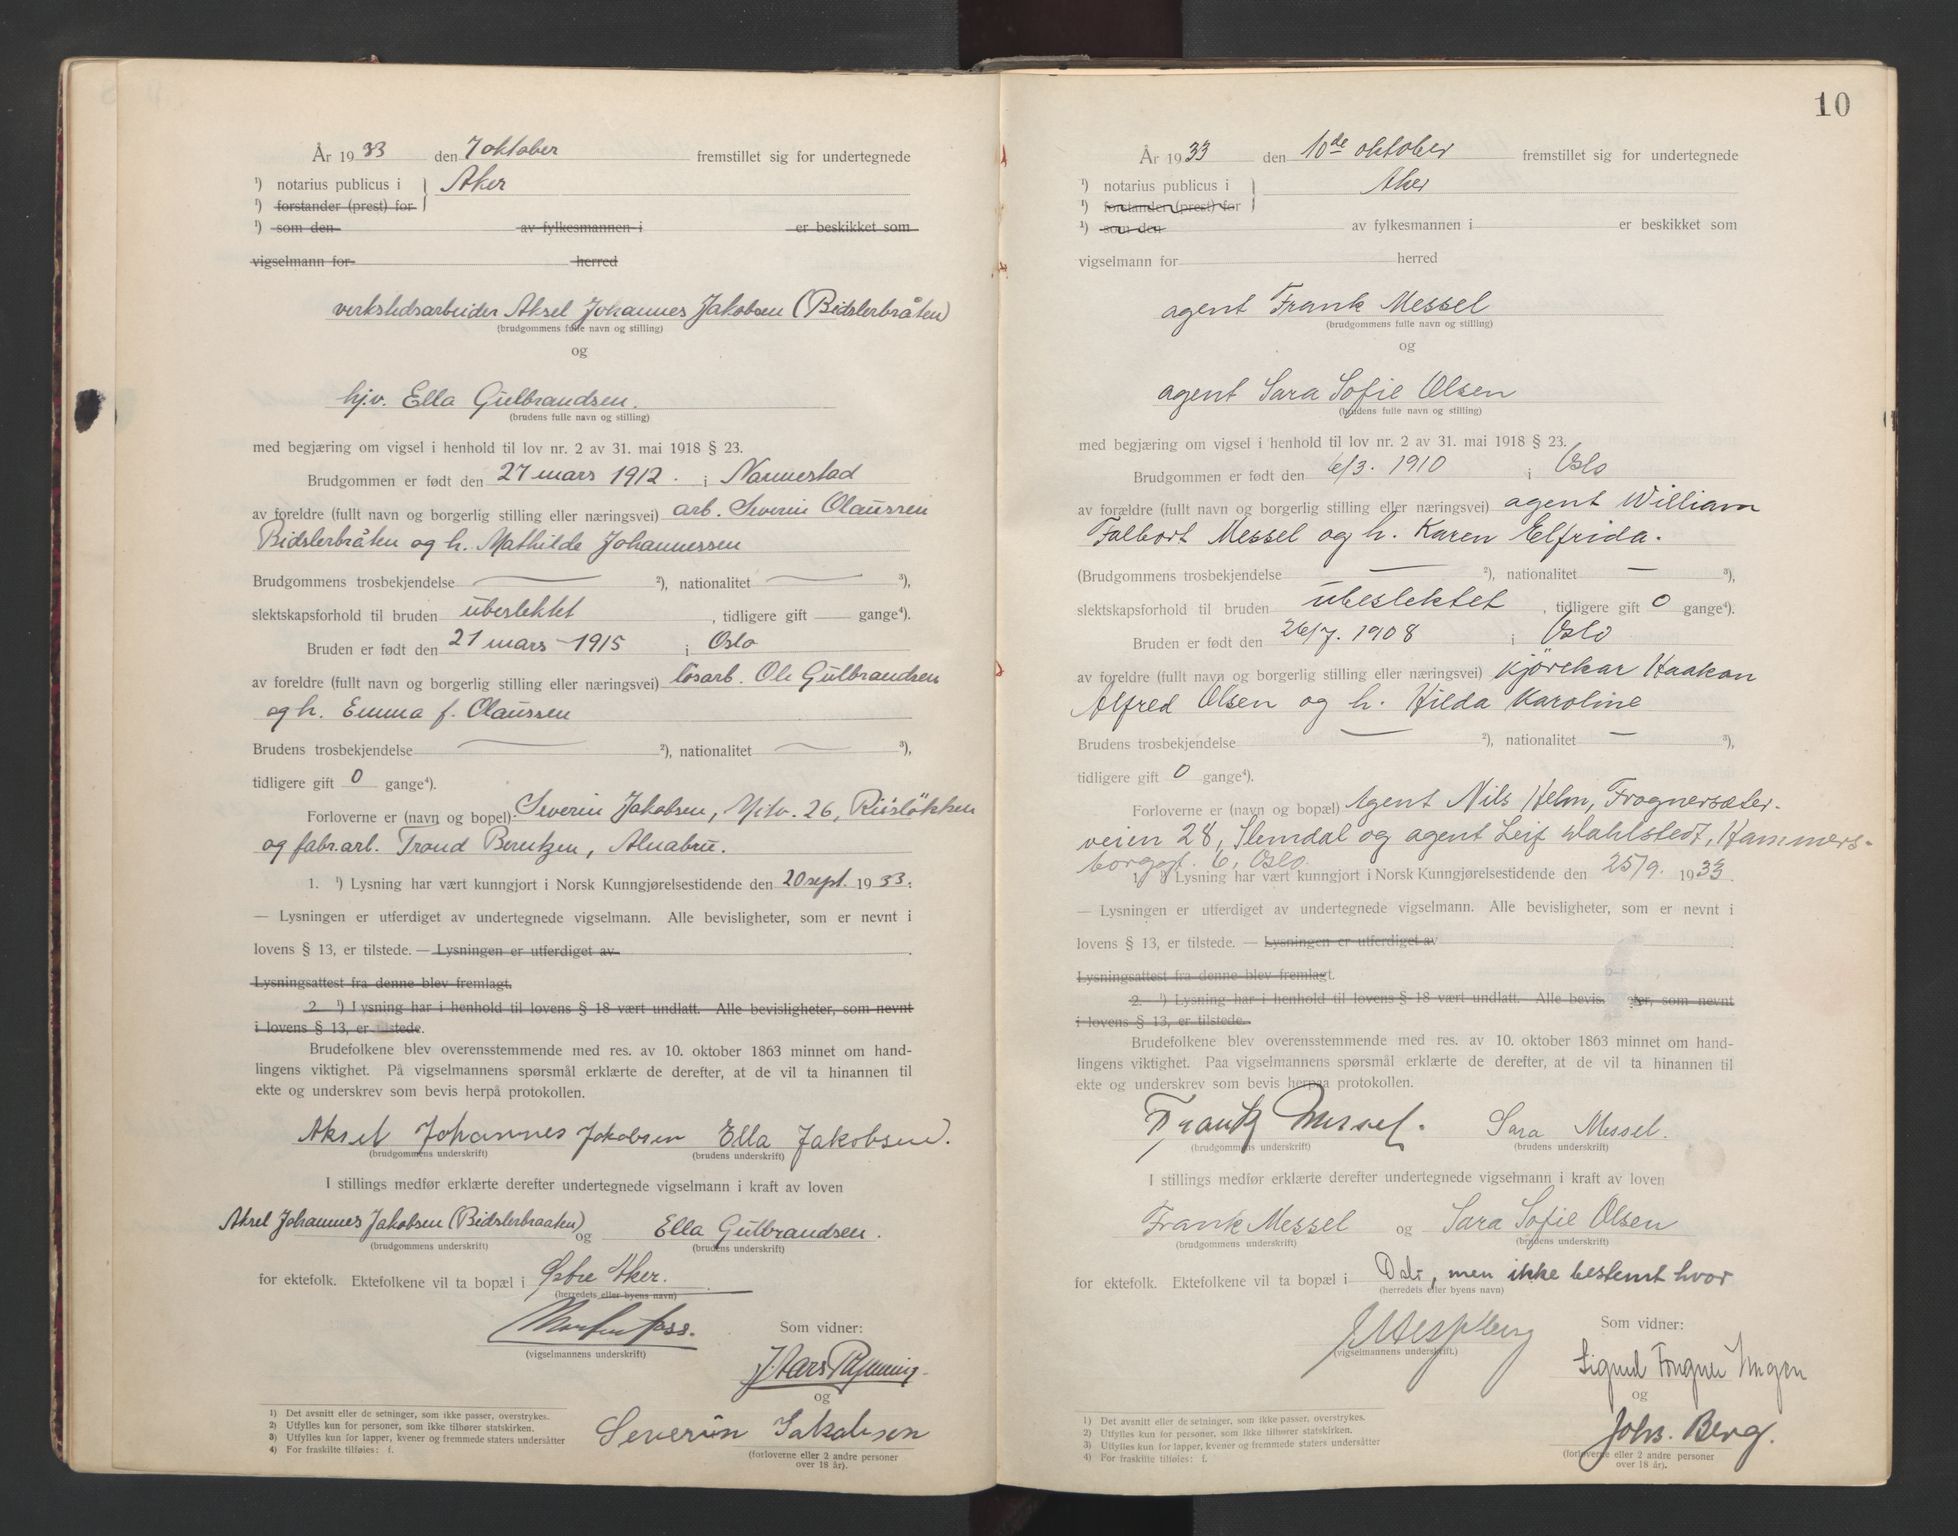 År 1933 den 7 oktober fremstillet sig for undertegnede
¹) notarius publicus i } Aker
¹) forstander (prest) for
¹) som den av fylkesmannen i er beskikket som
vigselmann for herred
verkstedsarbeider Aksel Johannes Jakobsen (Bidslerbråten)
(brudgommens fulle navn og stilling)
og
hj.v. Ella Gulbrandsen.
(brudens fulle navn og stilling)
med begjæring om vigsel i henhold til lov nr. 2 av 31. mai 1918 § 23.
Brudgommen er født den 27 mars 1912. i Nannestad
av foreldre (fullt navn og borgerlig stilling eller næringsvei) arb. Severin Olaussen
Bidslerbråten og h. Mathilde Johannessen
Brudgommens trosbekjendelse — ²), nationalitet — ³),
slektskapsforhold til bruden ubeslektet, tidligere gift — gange⁴).
Bruden er født den 21 mars 1915 i Oslo
av foreldre (fullt navn og borgerlig stilling eller næringsvei) løsarb. Ole Gulbrandsen
og h. Emma f. Olaussen
Brudens trosbekjendelse — ²), nationalitet — ³),
tidligere gift 0 gange⁴).
Forloverne er (navn og bopel): Severin Jakobsen, 26, Risløkken
og fabr.arb. Trond Berntzen, Alnabru.
1. ¹) Lysning har vært kunngjort i Norsk Kunngjørelsestidende den 20 sept. 1933.
— Lysningen er utferdiget av undertegnede vigselmann. Alle bevisligheter, som er nevnt i
lovens § 13, er tilstede. — Lysningen er utferdiget av
Lysningsattest fra denne blev fremlagt.
2. ¹) Lysning har i henhold til lovens § 18 vært undlatt. Alle bevisligheter, som nevnt
i lovens § 13, er tilstede.
Brudefolkene blev overensstemmende med res. av 10. oktober 1863 minnet om hand-
lingens viktighet. På vigselmannens spørsmål erklærte de derefter, at de vil ta hinannen til
ekte og underskrev som bevis herpå protokollen.
Aksel Johannes Jakobsen Ella Jakobsen.
(brudgommens underskrift) (brudens underskrift)
I stillings medfør erklærte derefter undertegnede vigselmann i kraft av loven
Aksel Johannes Jakobsen (Bidslerbraaten) og Ella Gulbrandsen.
(brudgommens underskrift) (brudens underskrift)
for ektefolk. Ektefolkene vil ta bopæl i Østre Aker.
(herredets eller byens navn)
Som vidner:
(vigselmannens underskrift)
og
Severin Jakobsen
(forloverne eller 2 andre personer
over 18 år).
1) Det avsnitt eller de setninger, som ikke passer, overstrykes.
2) Utfylles kun for personer, som ikke tilhører statskirken.
3) Utfylles kun for lapper, kvener og fremmede staters undersåtter
4) For fraskilte tilføies: f.
10
År 1933 den 10de oktober fremstillet sig for undertegnede
¹) notarius publicus i } Aker
¹) forstander (prest) for
¹) som den av fylkesmannen i er beskikket som
vigselmann for herred
agent Frank Messel
(brudgommens fulle navn og stilling)
og
agent Sara Sofie Olsen
(brudens fulle navn og stilling)
med begjæring om vigsel i henhold til lov nr. 2 av 31. mai 1918 § 23.
Brudgommen er født den 6/3. 1910 i Oslo
av forældre (fullt navn og borgerlig stilling eller næringsvei) agent William
Falbort Messel og h. Karen Elfrida.
(Brudgommens trosbekjendelse — ²), nationalitet — ³),
slektskapsforhold til bruden ubeslektet, tidligere gift 0 gange⁴).
Bruden er født den 26/7. 1908 i Oslo
av forældre (fullt navn og borgerlig stilling eller næringsvei) kjørekar Haakon
Alfred Olsen og h. Hilda Karoline
Brudens trosbekjendelse — ²), nationalitet — ³),
tidligere gift 0 gange⁴).
Forloverne er (navn og bopæl) Agent Nils Helm, Frognersæter-
veien 28, Slemdal og agent Leif Wahlstedt, Hammers-
borggt. 6, Oslo.
1. ¹) Lysning har vært kunngjort i Norsk Kunngjørelsestidende den 25/9. 1933.
— Lysningen er utferdiget av undertegnede vigselmann. Alle bevisligheter, som er nevnt i
lovens § 13, er tilstede. — Lysningen er utferdiget av
Lysningsattest fra denne blev fremlagt.
2. ¹) Lysning har i henhold til lovens § 18 vært undlatt. Alle bevis. eter, som nevnt
i lovens § 13, er tilstede.
Brudefolkene blev overensstemmende med res. av 10. oktober 1863 minnet om hand-
lingens viktighet. Paa vigselmannens spørsmål erklærte de derefter, at de vil ta hinannen til
ekte og underskrev som bevis herpaa protokollen.
Frank Messel. Sara Messel.
(brudgommens underskrift) (brudens underskrift)
I stillings medfør erklærte derefter undertegnede vigselmann i kraft av loven
Frank Messel og Sara Sofie Olsen
(brudgommens underskrift) (brudens underskrift)
for ektefolk. Ektefolkene vil ta bopæl i Oslo, men ikke bestemt hvor
(herredets eller byens navn)
Som vidner:
(vigselmannens underskrift.)
Sigurd
og
Johs. Berg.
(forloverne eller 2 andre personer
over 18 år).
1) Det avsnitt eller de setninger, som ikke passer, overstrykes.
2) Utfylles kun for personer, som ikke tilhører statskirken.
3) Utfylles kun for lapper, kvener og fremmede staters undersåtter
4) For fraskilte tilføies: f.